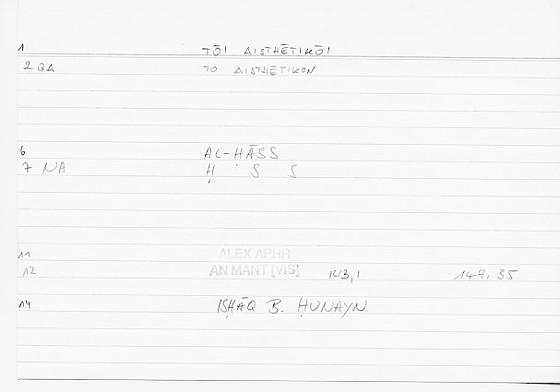 1 TŌI AISTHĒTIKŌI
2 QA TO AISTHĒTIKON
6 AL-ḤĀSS
7 NA Ḥ ' S S
11 ALEX APHR
12 AN MANT [VIS] 143,1 149,35
14 ISḤĀQ B. ḤUNAYN